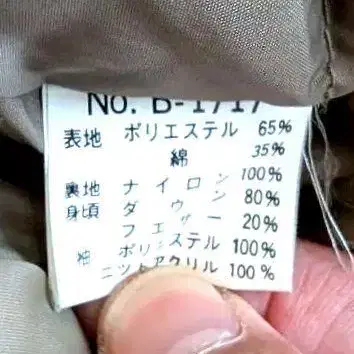 No. B-1717
表地 ポリエステル 65%
綿 35%
裏地 ナイロン 100%
身頃 ダウン 80%
フェザー 20%
袖 ポリエステル 100%
ニットアクリル 100%